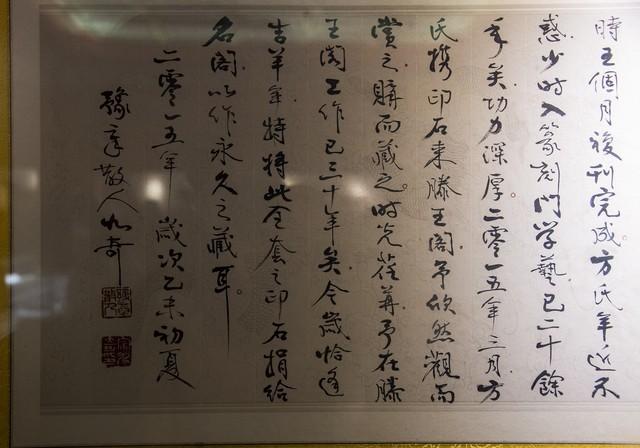 時五個月複刊完成方氏年近不
惑少时入篆刻門学藝已二十餘
年矣功力深厚。二零一五年三月方
氏携印石来滕王阁予欣然觀而
赏之購而藏之。时光荏苒予在滕
王阁工作已三十年矣今歲恰逢
吉羊年特将此全套之印石捐给
名阁以作永久之藏耳。
二零一五年 歲次乙未初夏
豫章散人 奇